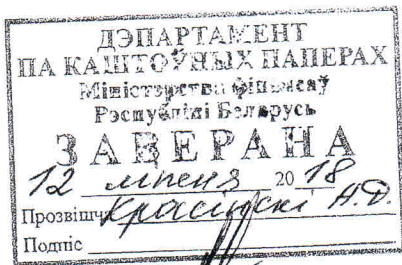 ДЭПАРТАМЕНТ
ПА КАШТОЎНЫХ ПАПЕРАХ
Міністэрства фінансаў
Рэспублікі Беларусь
ЗАВЕРАНА
12 ліпеня 2018
Прозвішча Красінскі Н.Д.
Подпіс